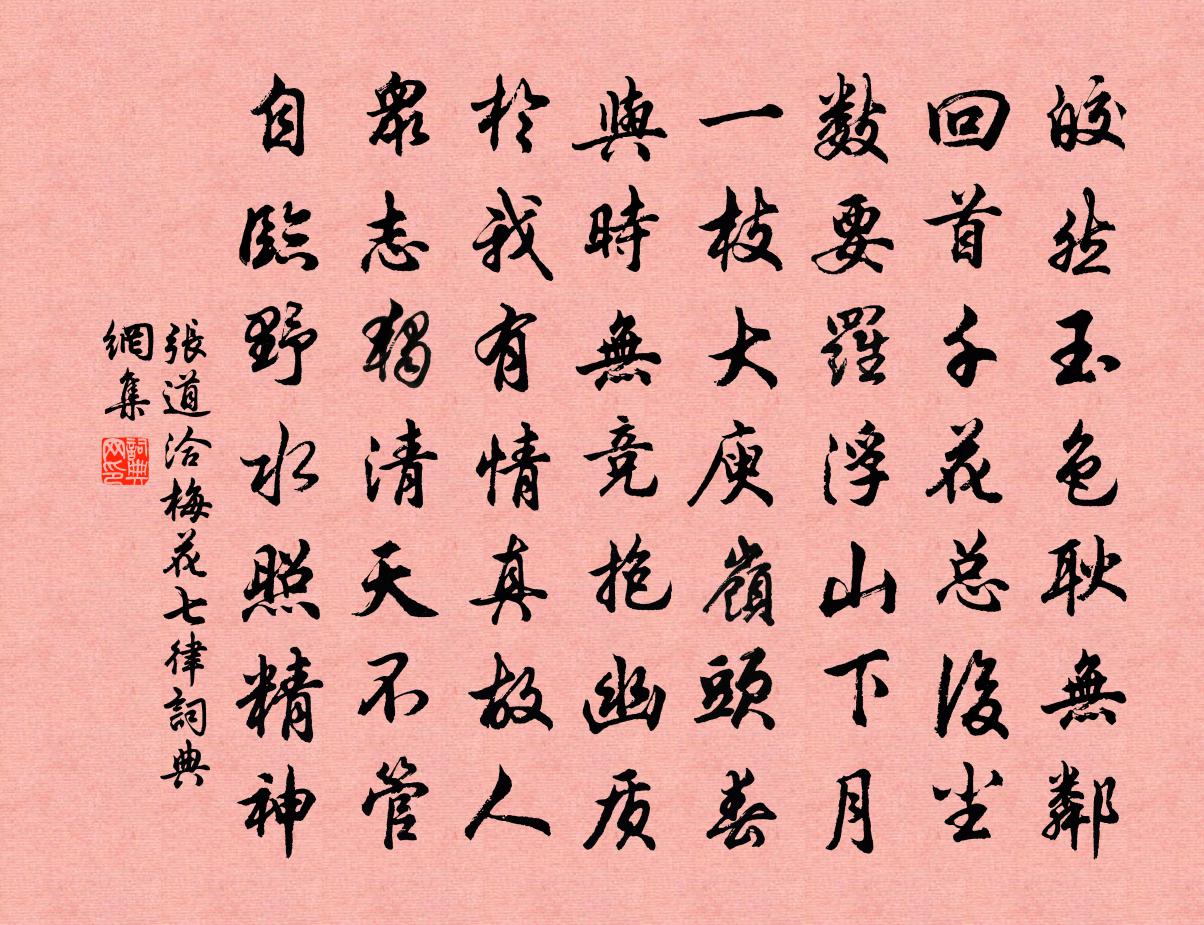 皎然玉色耿無鄰
回首千花总後尘
數要羅浮山下月
一枝大庾嶺頭春
與時無竞抱幽质
於我有情真故人
衆志獨清天不管
自臨野水照精神
張道洽梅花七律詞典
網集
詞典
网印